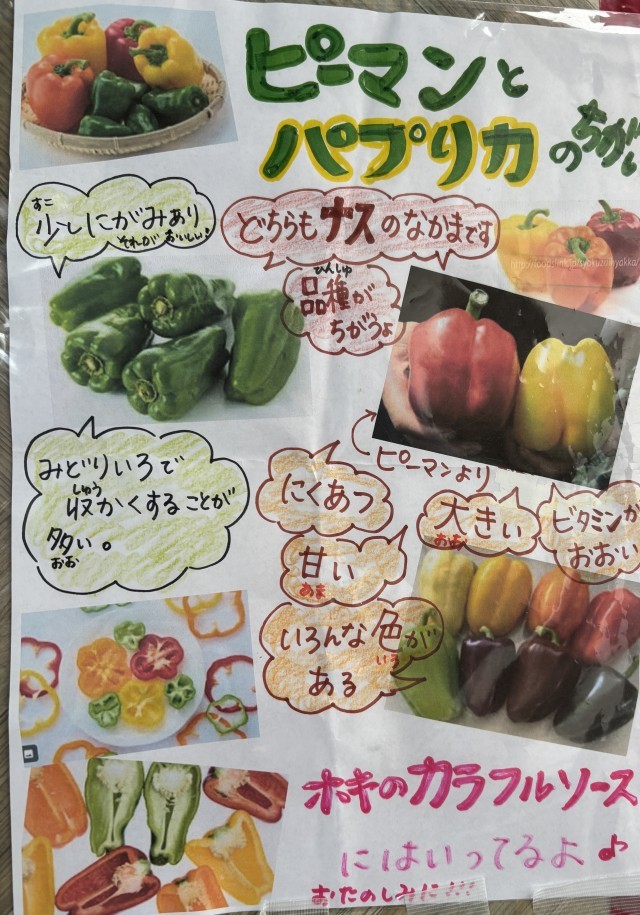 ピーマンと
パプリカ
のちがい
すこ
少しにがみあり
それがおいしい♪
どちらもナスのなかまです
ひんしゅ
品種が
ちがうよ
ピーマンより
みどりいろで
しゅう
収かくすることが
多い。
おお
にくあつ
大きい
おお
ビタミンが
おおい
甘い
あま
いろんな色が
いろ
ある
ホキのカラフルソース
にはいってるよ♪
おたのしみに!!!